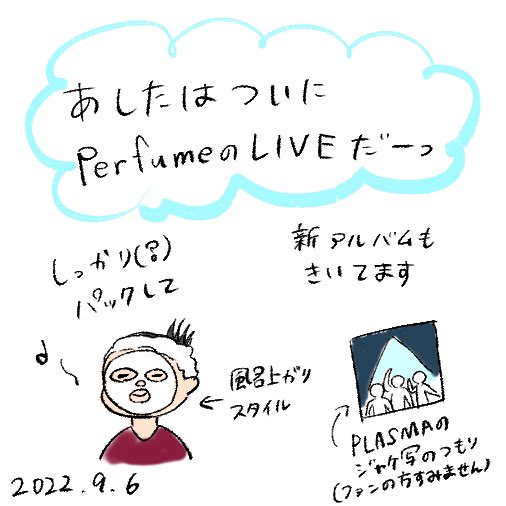 あしたはついに
PerfumeのLIVEだーっ
しっかり(?)
パックして
新アルバムも
きいてます
風呂上がり
スタイル
PLASMAの
ジャケ写のつもり
(ファンの方すみません)
2022.9.6